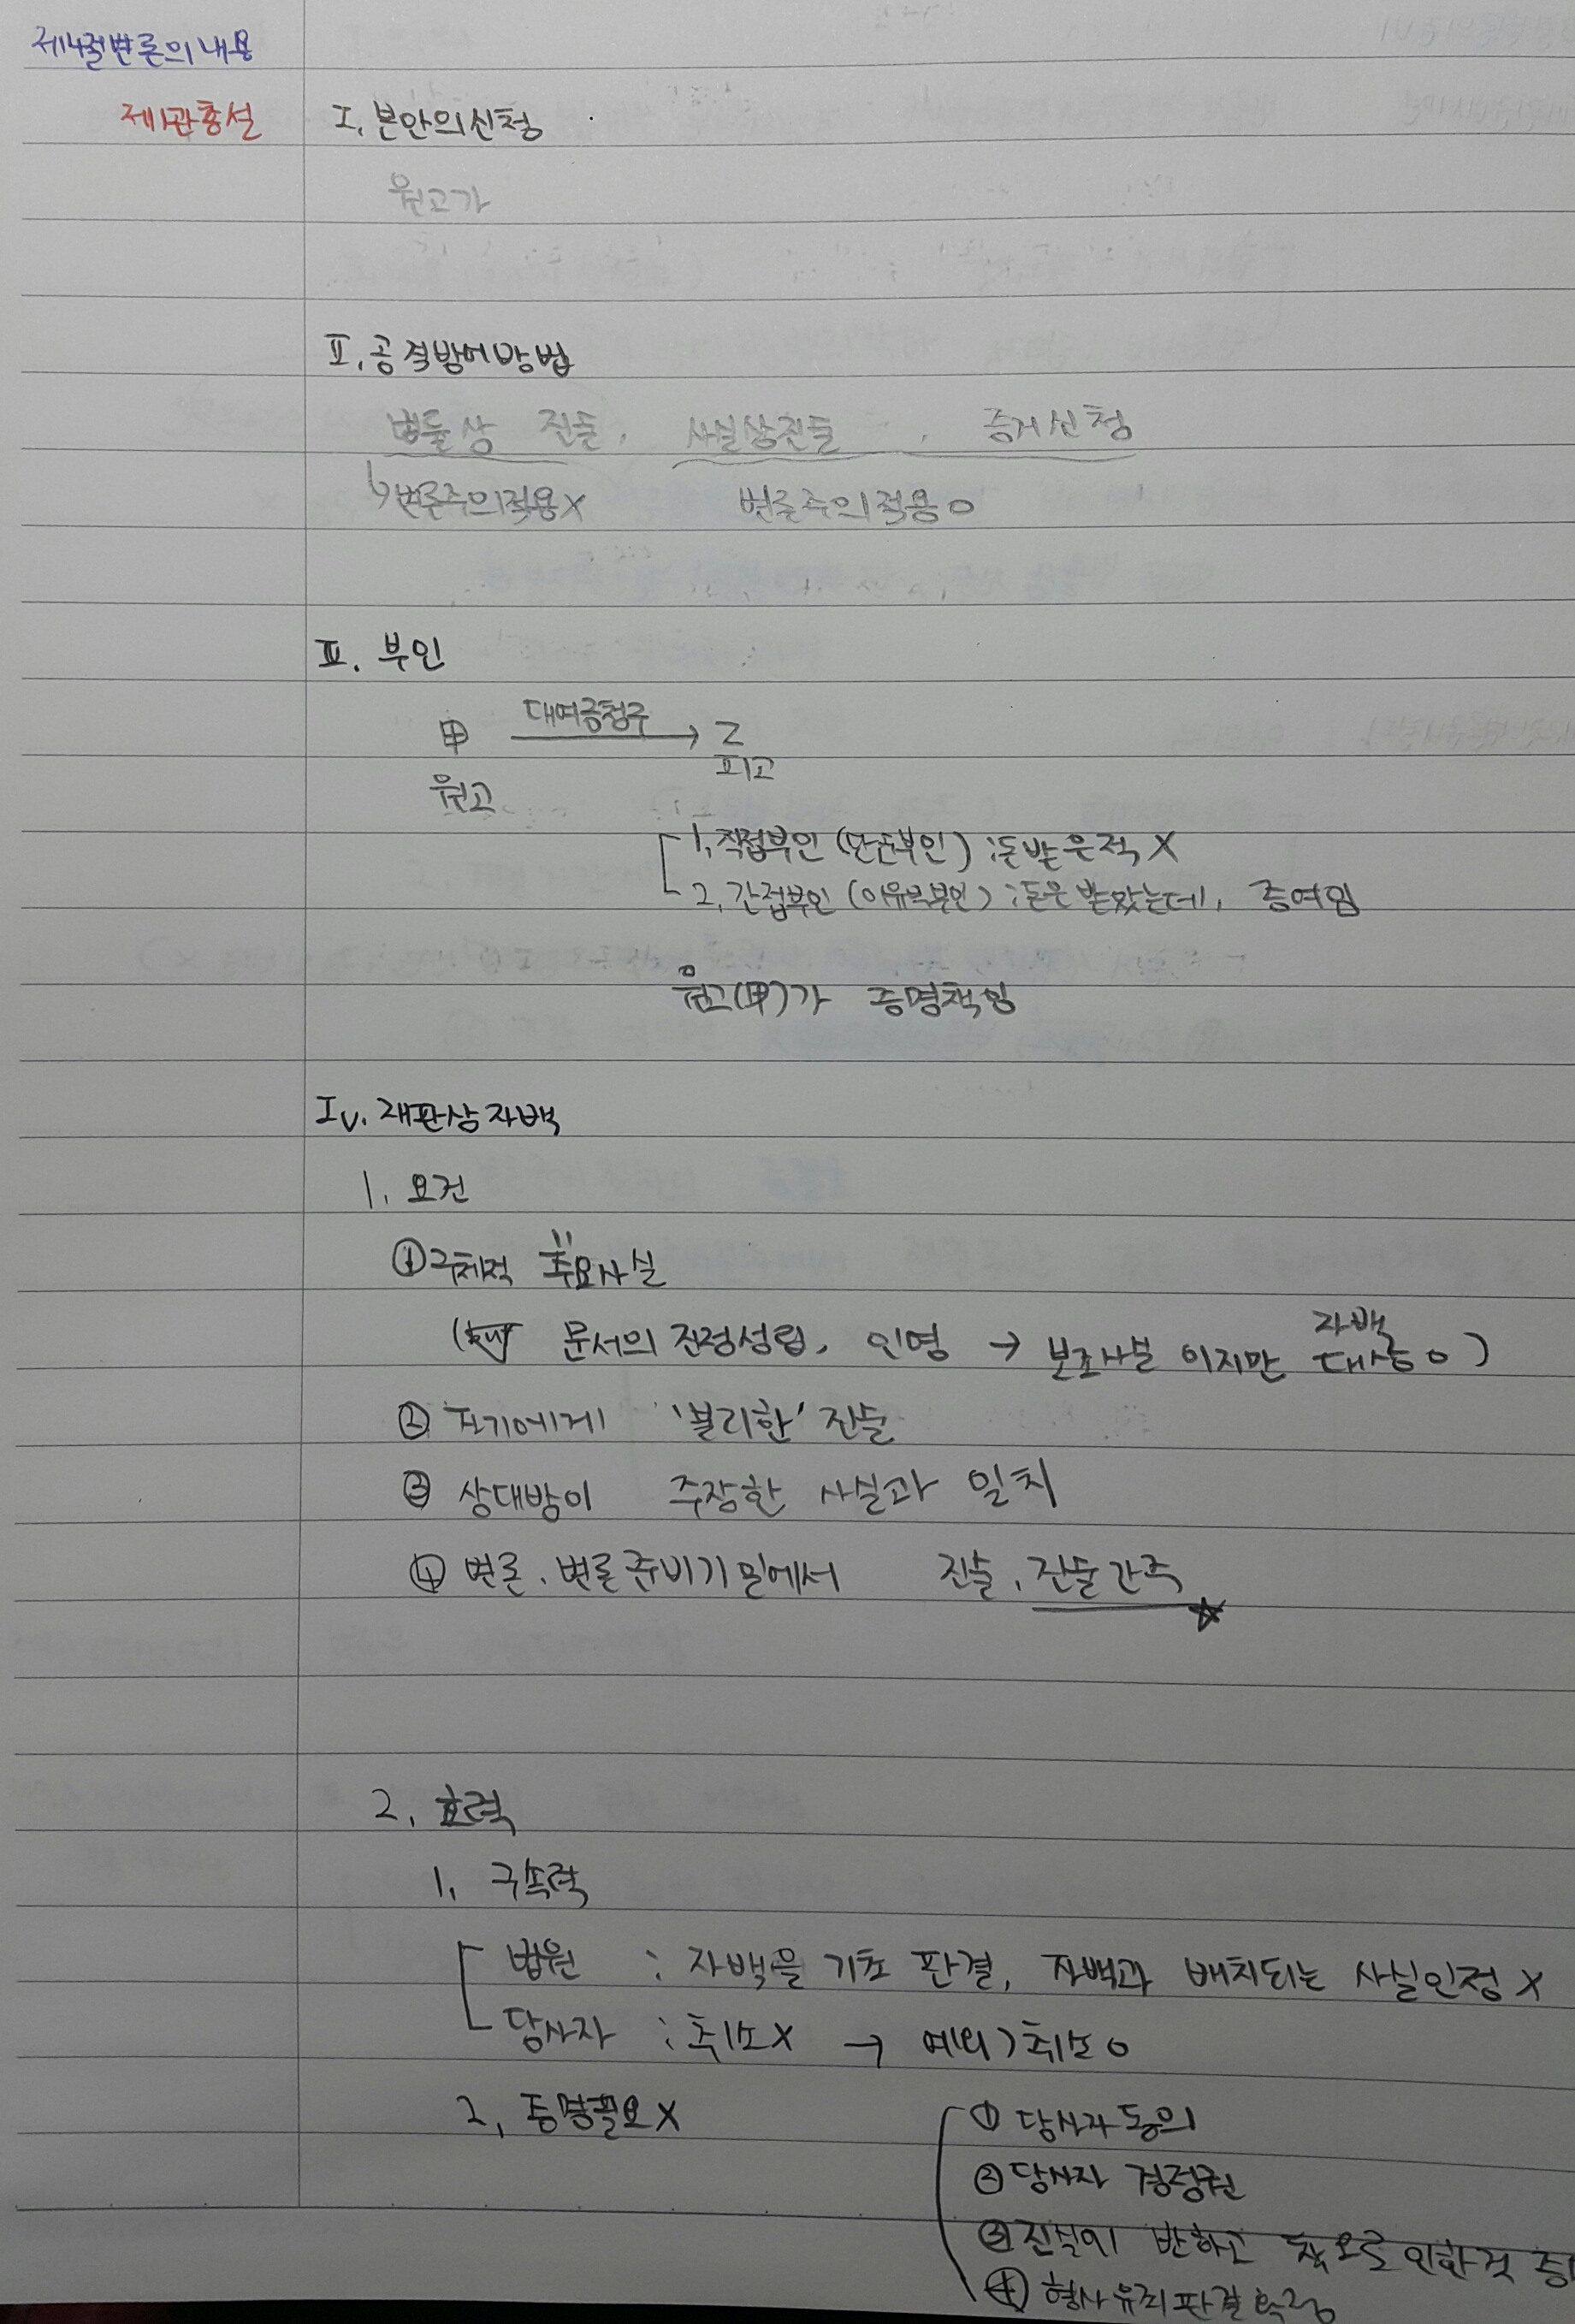 제4절 변론의 내용
제1관 총설
I. 본안의 신청
원고가
II. 공격방어방법
법률상 진술, 사실상진술, 증거신청
↳변론주의적용X 변론주의적용O
III. 부인
甲 대여금청구 → 乙
원고 피고
1. 직접부인 (단순부인) : 돈받은적 X
2. 간접부인 (이유부부인) : 돈은 받았는데, 증여임
원고(甲)가 증명책임
IV. 재판상자백
1. 요건
① 구체적 주요사실
( 문서의 진정성립, 인영 → 보조사실 이지만 자백대상 O)
② 자기에게 '불리한' 진술
③ 상대방이 주장한 사실과 일치
④ 변론, 변론준비기일에서 진술, 진술간주 ☆
2. 효력
1. 구속력
법원 : 자백을 기초 판결, 자백과 배치되는 사실인정 X
당사자 : 취소X → 예외) 취소 O
2. 증명필요X
① 당사자 동의
② 당사자 경정권
③ 진실에 반하고 착오로 인한 것 증
④ 형사유죄판결확정